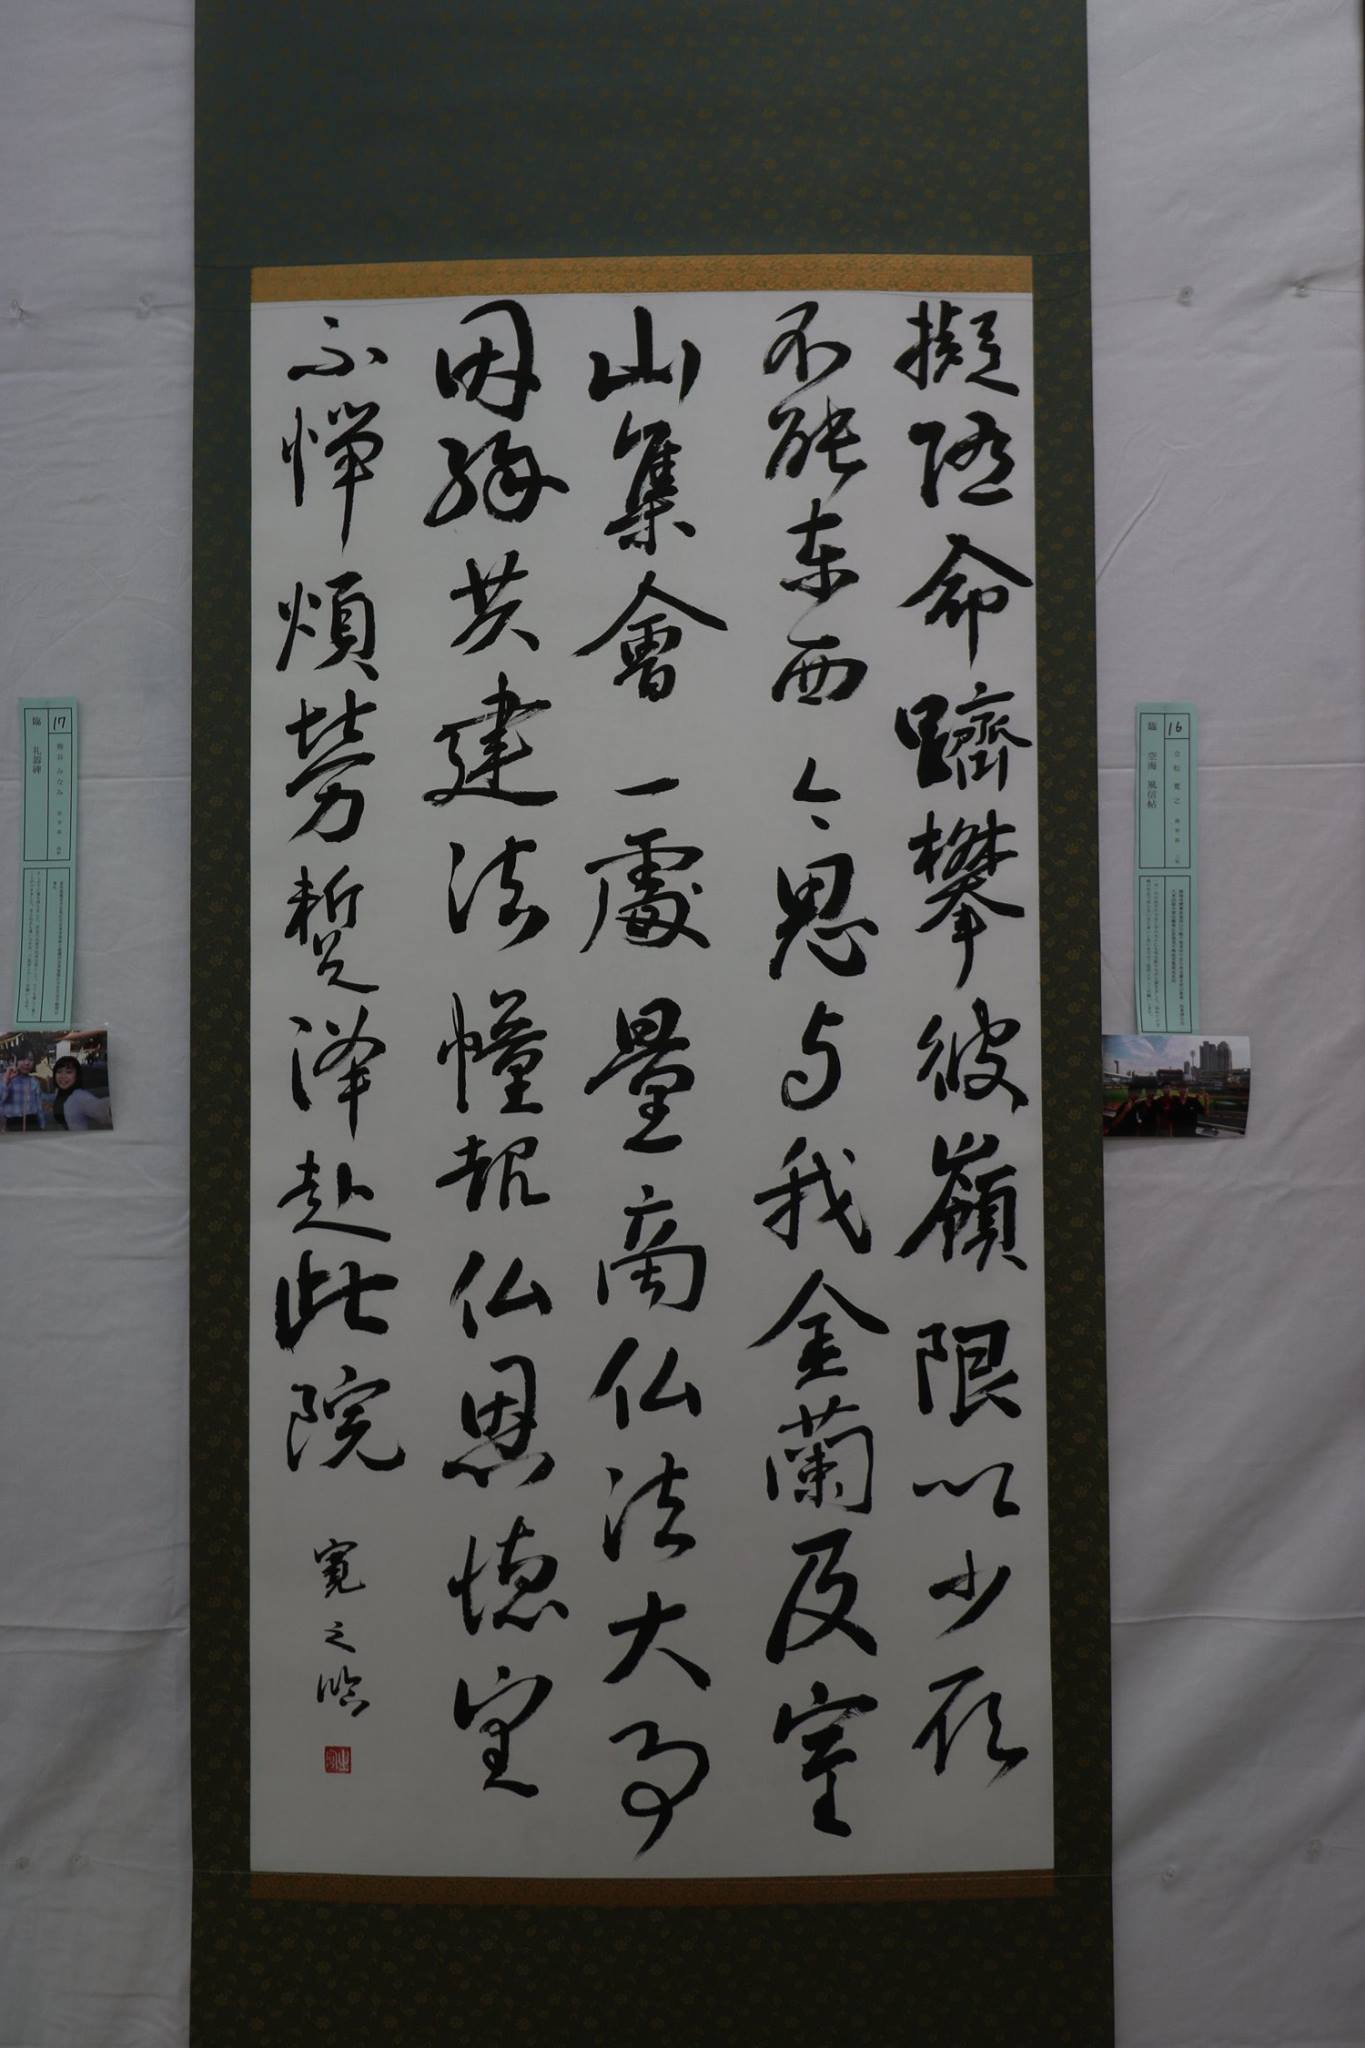 擬随命躋攀彼嶺限以少願
不能東西今思与我金蘭及室
山集會一處量商仏法大事
因縁共建法幢報仏恩徳望
不憚煩勞蹔降赴此院
寛之臨
16
臨 空海 風信帖
17
臨 礼器碑